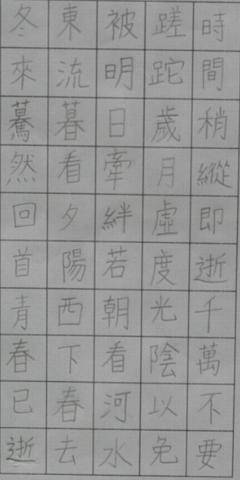 時間稍縱即逝千萬不要
蹉跎歲月虛度光陰以免
被明日牽絆若朝看河水
東流暮看夕陽西下春去
冬來驀然回首青春已逝